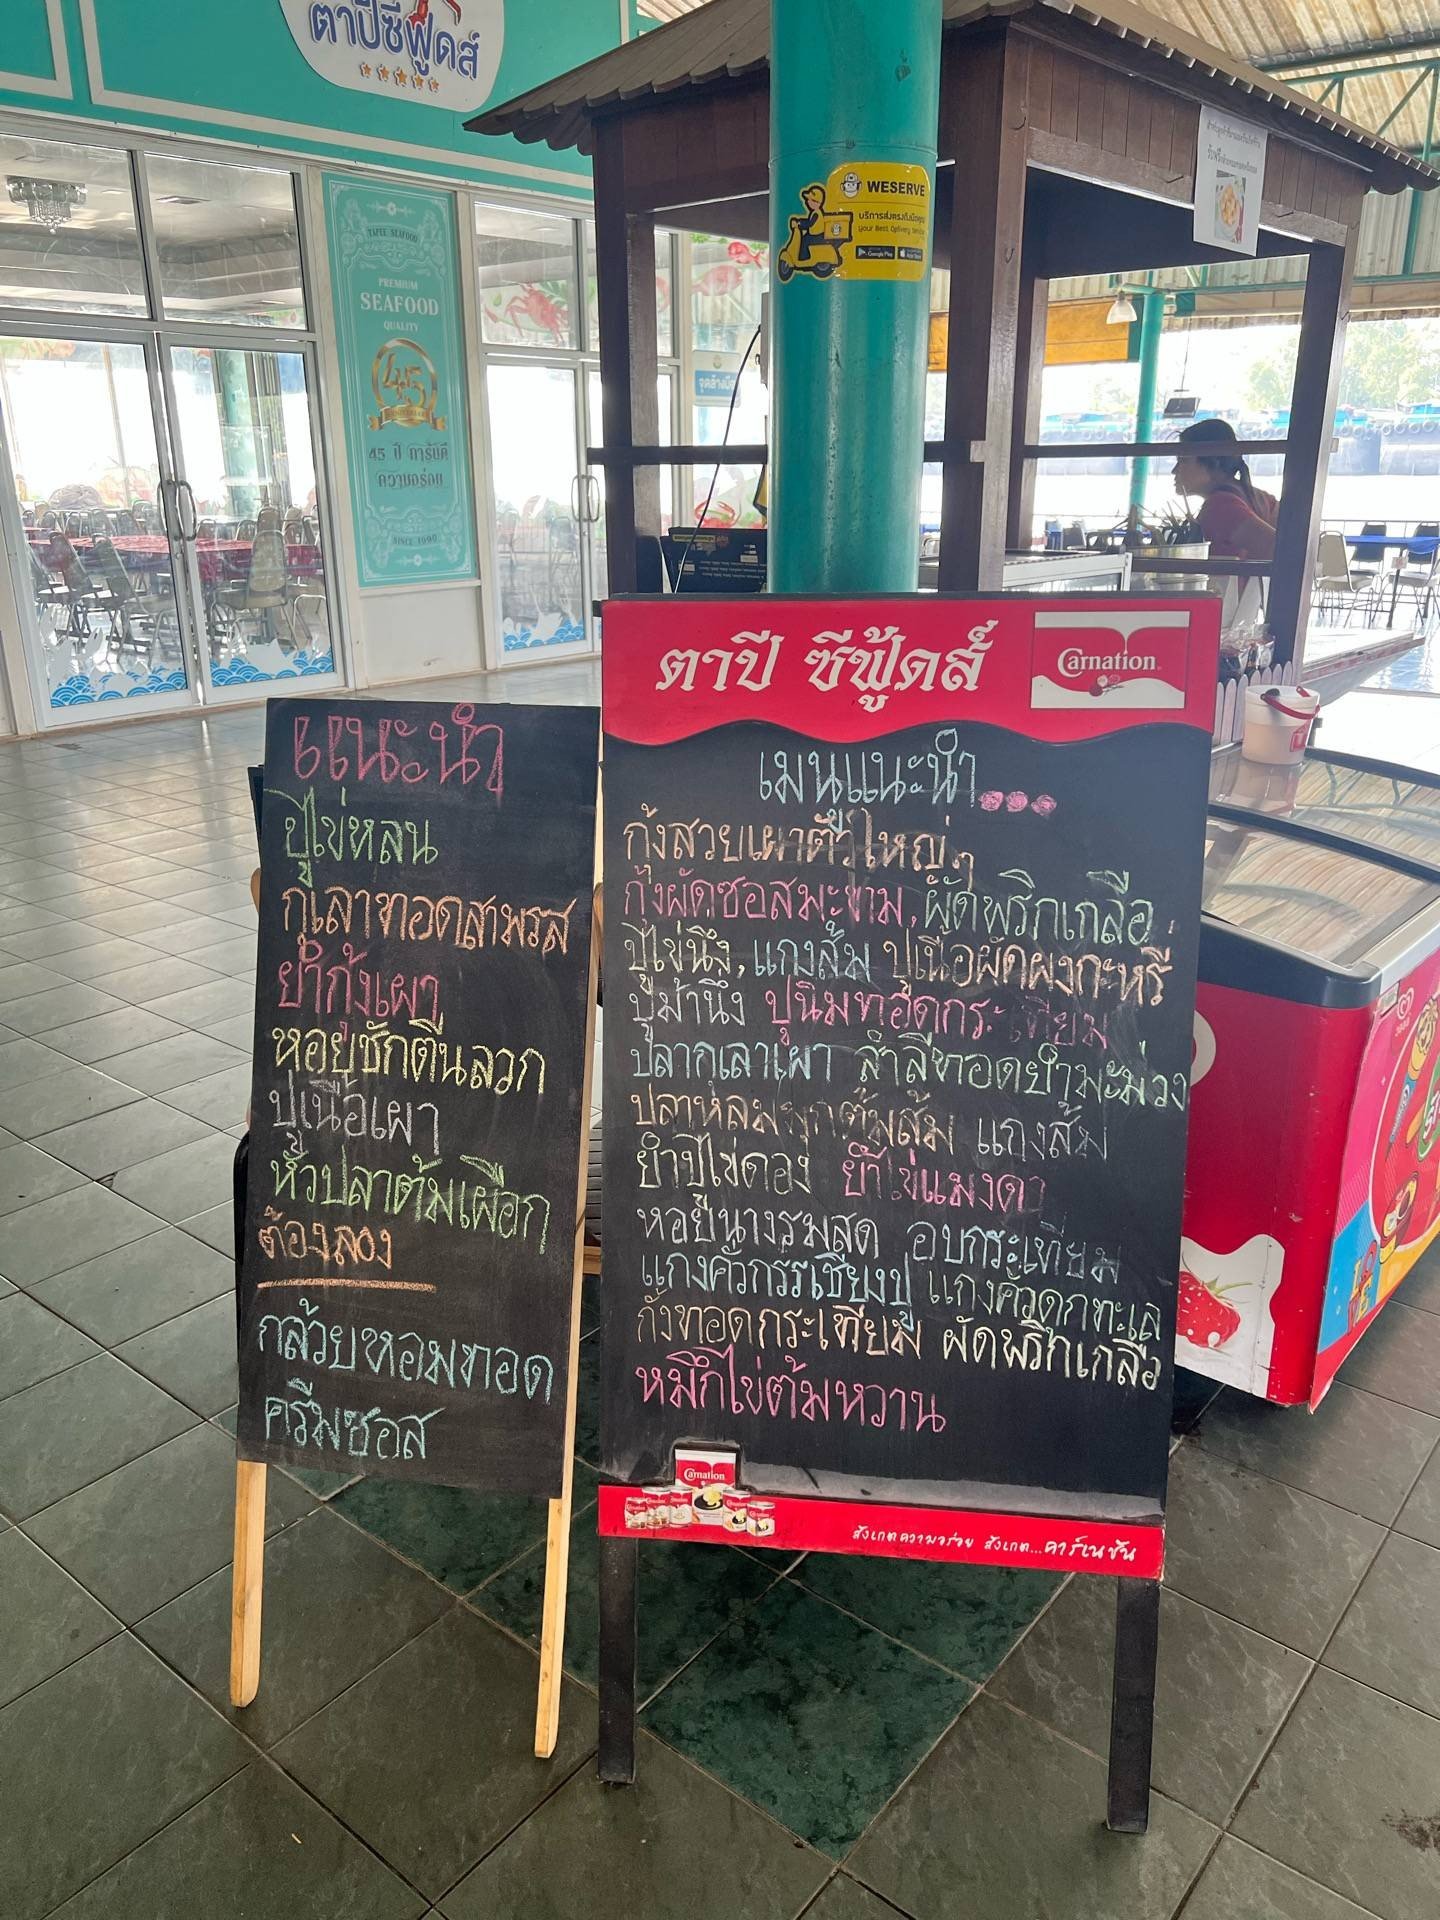 ตาปีซีฟู้ดส์
WESERVE
บริการส่งตรงถึงมือคุณ
your Best Delivery Service
Google Play
TAPEE SEAFOOD
PREMIUM
SEAFOOD
QUALITY
45
ANNIVERSARY
45 ปี การันตี
ความอร่อย
SINCE 1990
จุดล้างมือ
ตาปี ซีฟู้ดส์
Carnation
แนะนำ
ปูไข่หลน
กุเลาทอดสาพรส
ยำกุ้งเผา
หอยชักตีนลวก
ปูเนื้อเผา
หัวปลาต้มเผือก
ต้องลอง
กล้วยหอมทอด
ครีมซอส
เมนูแนะนำ...
กุ้งสวยเผาตัวใหญ่ๆ
กุ้งผัดซอสมะขาม, ผัดพริกเกลือ
ปูไข่นึ่ง, แกงส้ม ปูเนื้อผัดผงกะหรี่
ปูม้านึ่ง ปูนิมทอดกระเทียม
ปลากุเลาเผา สำลีทอดยำมะม่วง
ปลาหลมมุกต้มส้ม แกงส้ม
ยำปูไข่ดอง ยำไข่แมงดา
หอยนางรมสด อบกระเทียม
แกงคั่วกรรเชียงปู แกงคั่วดุกทะเล
กั้งทอดกระเทียม ผัดพริกเกลือ
หมึกไข่ต้มหวาน
Carnation
สังเกตความอร่อย สังเกต...คาร์เนชัน